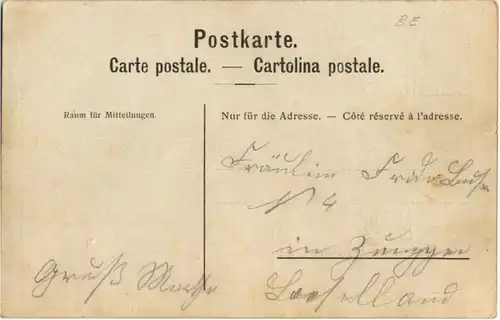 BE
Postkarte.
Carte postale. — Cartolina postale.
Raum für Mitteilungen.
Nur für die Adresse. — Côté réservé à l'adresse.
Fräulein Frida
N 4
in
Gruß
Baselland